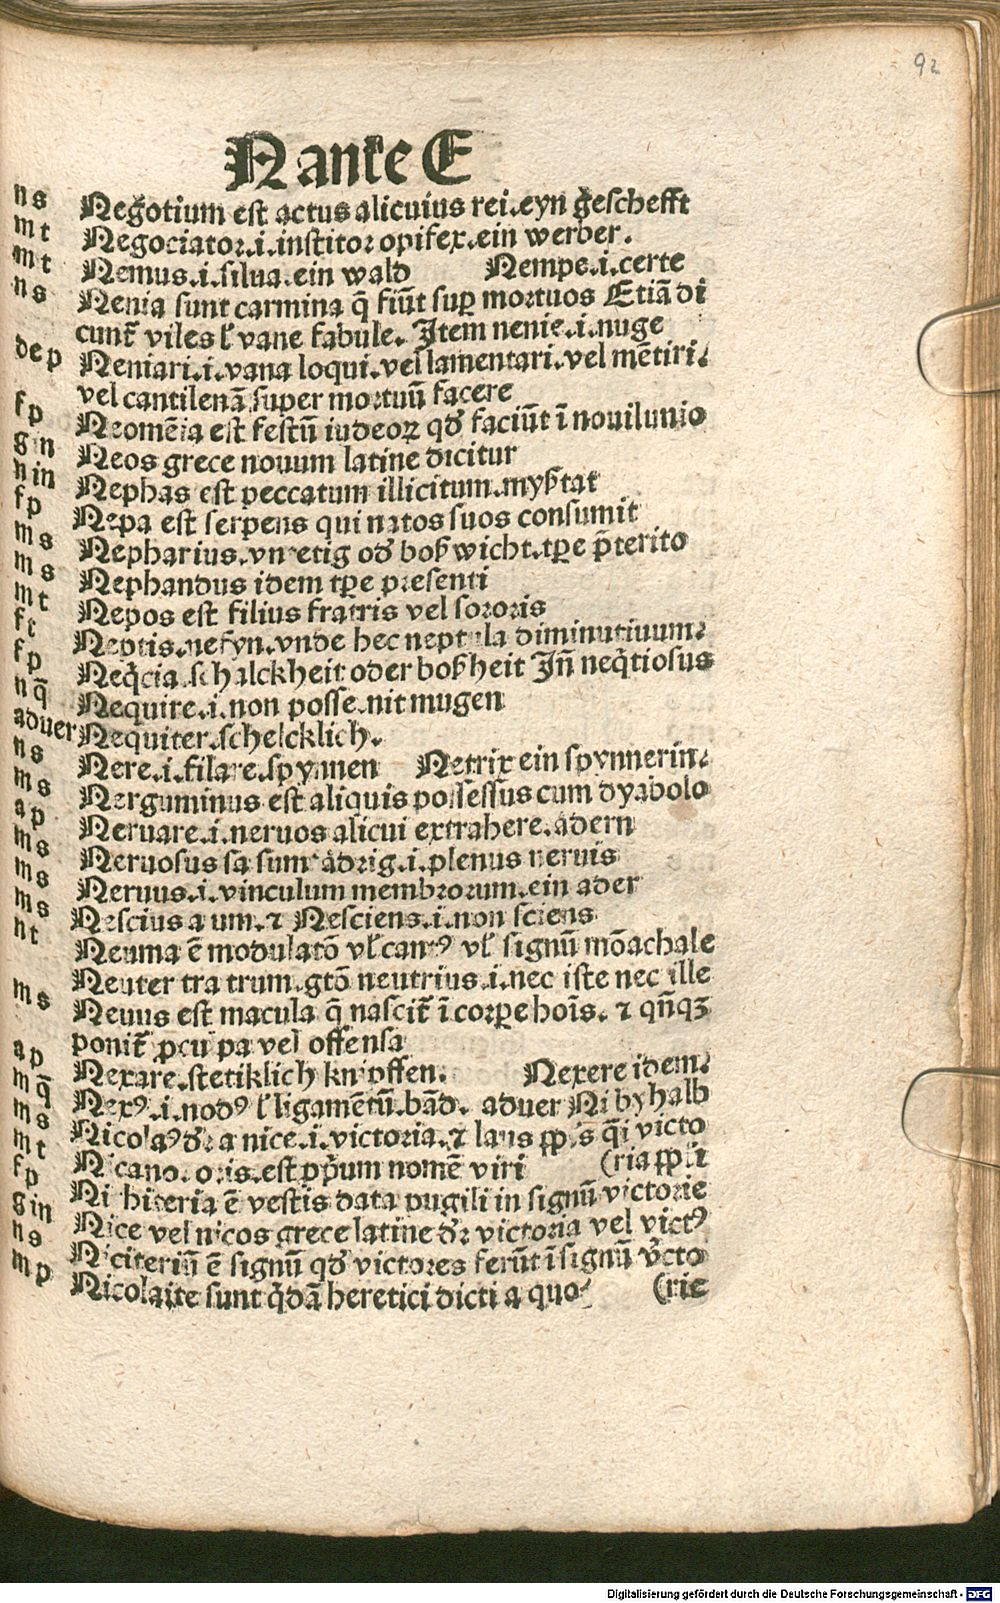 92
N anke E
ns Negotium est actus alicuius rei.eyn geschefft
mt Negociator.i.institor opifex.ein werber.
mt Nemus.i.silua.ein wald Nempe.i.certe
ns Nenia sunt carmina q̄ fiūt sup mortuos Etiā di
cunt̄ viles ł vane fabule. Item nenie.i.nuge
dep Neniari.i.vana loqui.vel lamentari.vel mētiri.
vel cantilenā super mortuū facere
fp Neomēia est festū iudeoꝝ qđ faciūt ī nouilunio
gin Neos grece nouum latine dicitur
nin Nephas est peccatum illicitum.myßtat
fp Nepa est serpens qui natos suos consumit
ms Nepharius.vnretig ođ boßwicht.tp̄e p̄terito
ms Nephandus idem tp̄e presenti
mt Nepos est filius fratris vel sororis
ft Neptis.nefyn.vnde hec neptula diminutiuum.
fp Neq̄cia.schalckheit oder boßheit Iñ neq̄tiosus
nq̄ Nequire.i.non posse.nit mugen
aduer Nequiter.schelcklich.
ns Nere.i.filare.spynnen Netrix ein spynnerin.
ms Nerguminus est aliquis possessus cum dyabolo
ap Neruare.i.neruos alicui extrahere.adern
ms Neruosus sa sum adrig.i.plenus neruis
ms Neruus.i.vinculum membrorum.ein ader
ms Nescius a um.⁊ Nesciens.i.non sciens
nt Neuma ē modulatō vł cantꝰ vł signū mōachale
Neuter tra trum.gtō neutrius.i.nec iste nec ille
ms Neuus est macula q̄ nascit̄ ī corpe hoīs.⁊ qn̄qꝫ
ponit̄ ꝓ culpa vel offensa
ap Nexare.stetiklich knipffen. Nexere idem.
mq̄ Nexꝰ.i.nodꝰ ł ligamētū.bād. aduer Ni byhalb
ms Nicolaꝰ dr̄ a nice.i.victoria.⁊ laus ꝓpl's q̄i victo
mt Nicano. oris.est ꝓp̄um nomē viri (ria ꝓpl'i
fp Ni hiteria ē vestis data pugili in signū victorie
gin Nice vel nicos grece latine dr̄ victoria vel victꝰ
ns Niciteriū ē signū qđ victores ferūt ī signū victo
mp Nicolaite sunt q̄dā heretici dicti a quo (rie
Digitalisierung gefördert durch die Deutsche Forschungsgemeinschaft - DFG